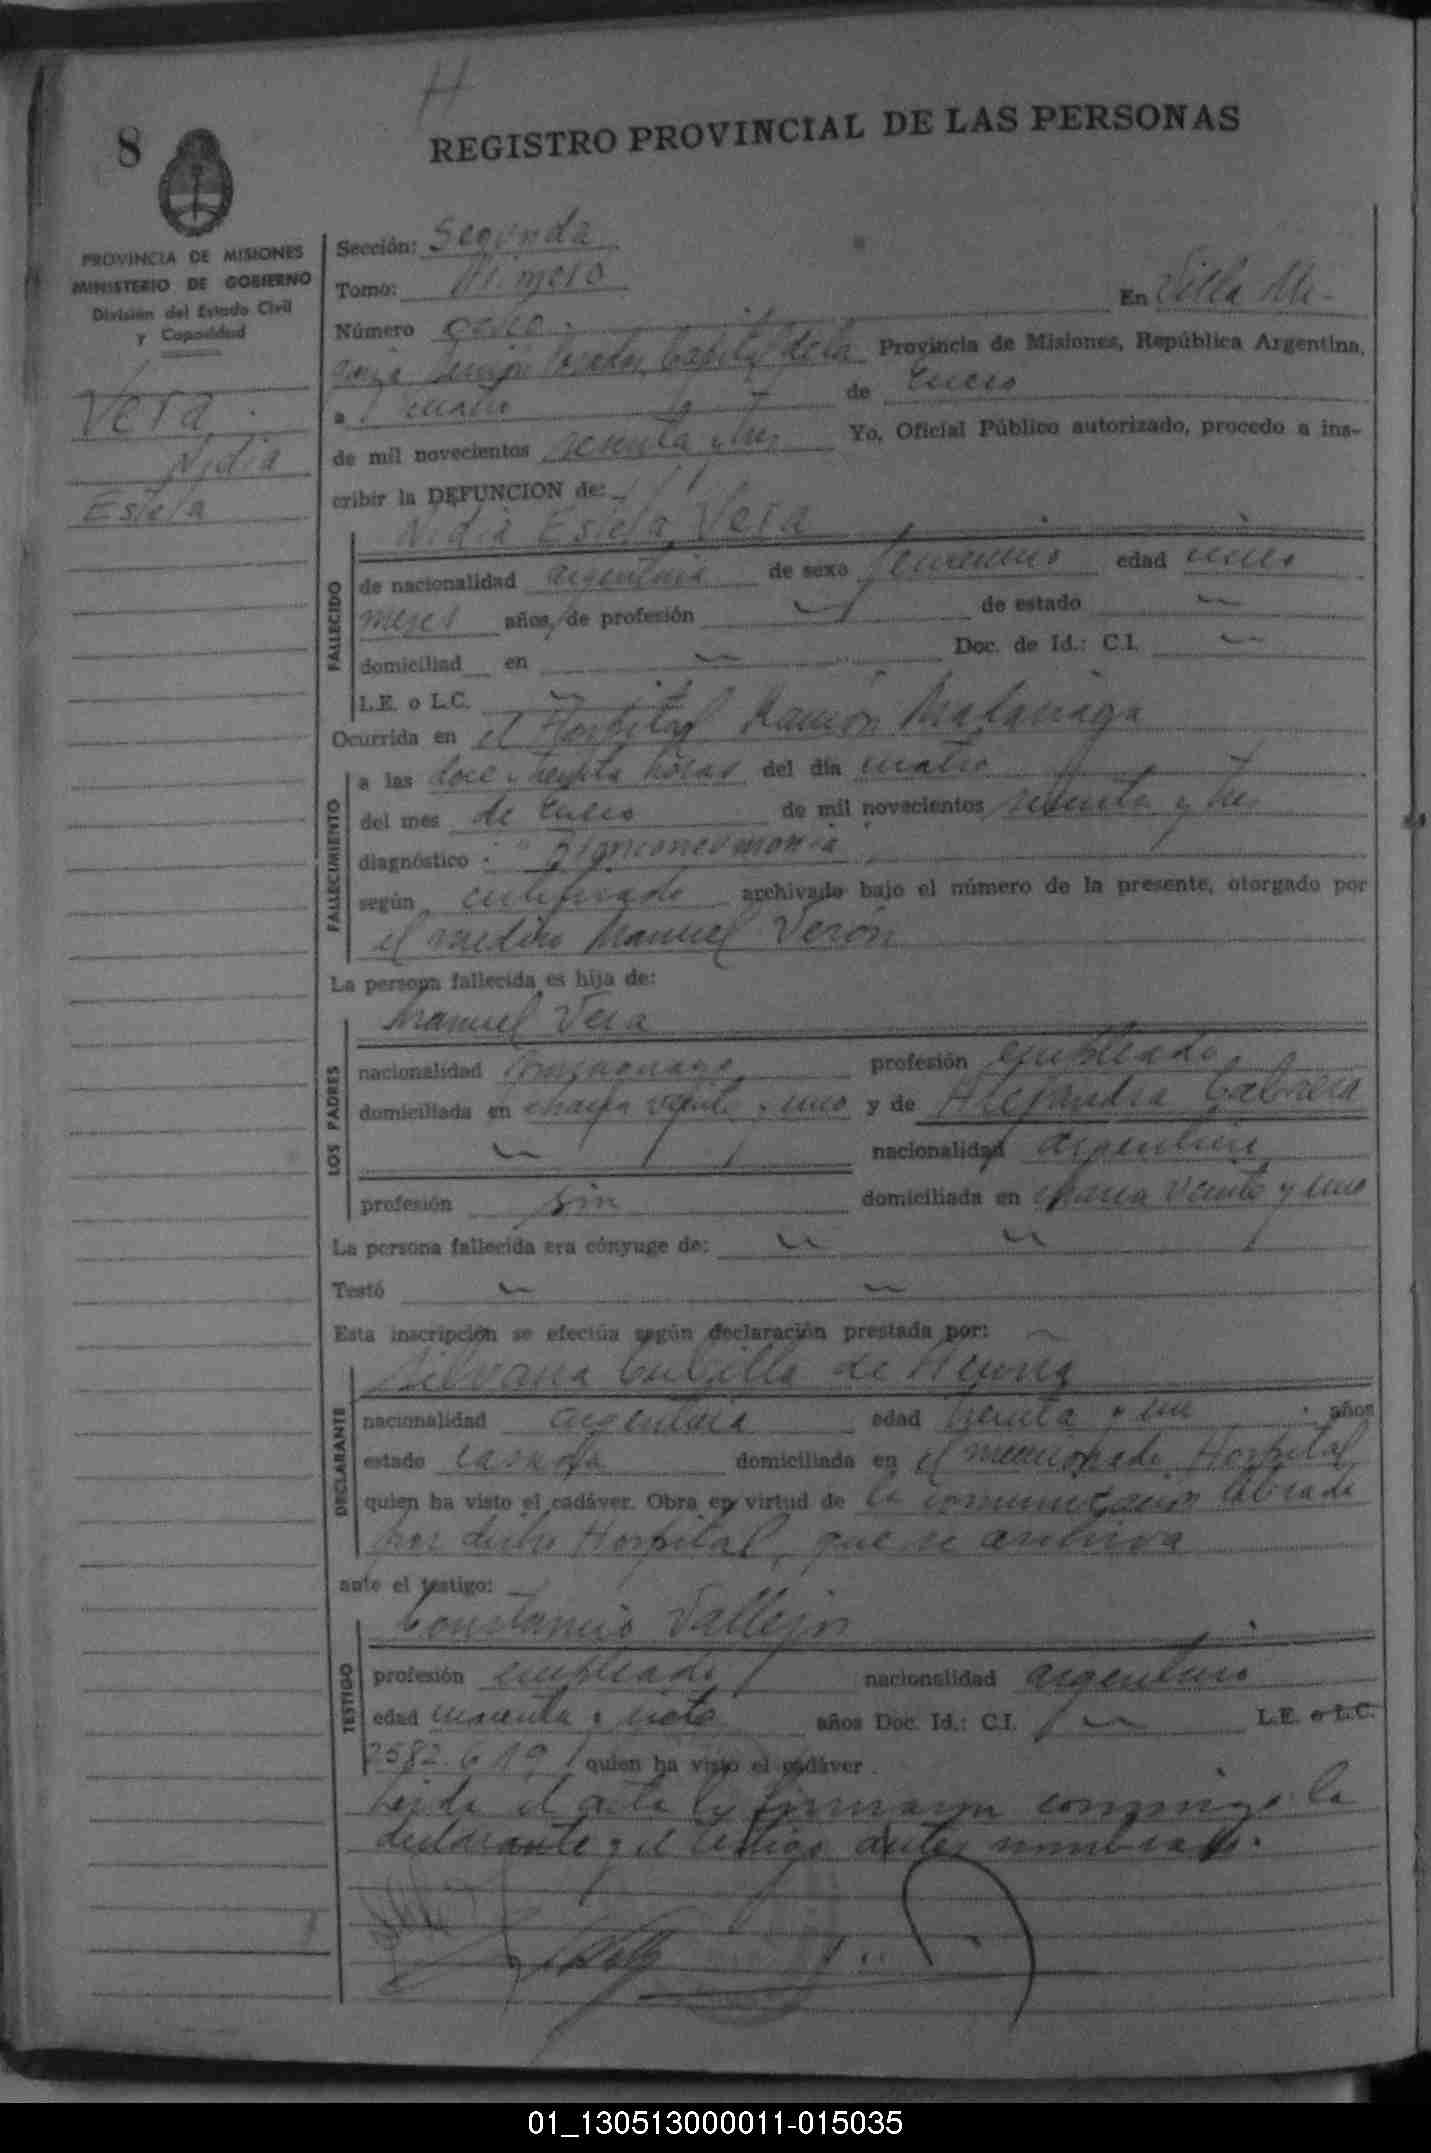 H
8
REGISTRO PROVINCIAL DE LAS PERSONAS
PROVINCIA DE MISIONES
MINISTERIO DE GOBIERNO
División del Estado Civil
y Capacidad
Vera
Nidia
Estela
Sección: Segunda
Tomo: Primero
Número ocho. En Villa Ma-
Capital de la Provincia de Misiones, República Argentina,
a cuatro de Enero
de mil novecientos sesenta y tres Yo, Oficial Público autorizado, procedo a ins-
cribir la DEFUNCION de:
Nidia Estela Vera
FALLECIDO
de nacionalidad argentina de sexo femenino edad
meses años, de profesión de estado
domiciliad en Doc. de Id.: C.I.
L.E. o L.C.
Ocurrida en el Hospital Ramón Madariaga
FALLECIMIENTO
a las doce y treinta horas del día cuatro
del mes de Enero de mil novecientos sesenta y tres
diagnóstico: "Bronconeumonia"
según certificado archivado bajo el número de la presente, otorgado por
el médico Manuel Verón
La persona fallecida es hija de:
Manuel Vera
LOS PADRES
nacionalidad profesión empleado
domiciliada en chacra veinte y uno y de Alejandra Cabrera
nacionalidad argentina
profesión sin domiciliada en chacra veinte y uno
La persona fallecida era cónyuge de:
Testó
Esta inscripción se efectúa según declaración prestada por:
Silvana de
DECLARANTE
nacionalidad argentina edad treinta y un años
estado casada domiciliada en el mencionado Hospital
quien ha visto el cadáver. Obra en virtud de la comunicación librada
por dicho Hospital, que se archiva
ante el testigo:
Constancio Vallejos
TESTIGO
profesión empleado nacionalidad argentino
edad años Doc. Id.: C.I. L.E. o L.C.
2582.619 quien ha visto el cadáver.
Leída el acta la firmaron conmigo la
declarante y el testigo antes nombrado.
01_130513000011-015035